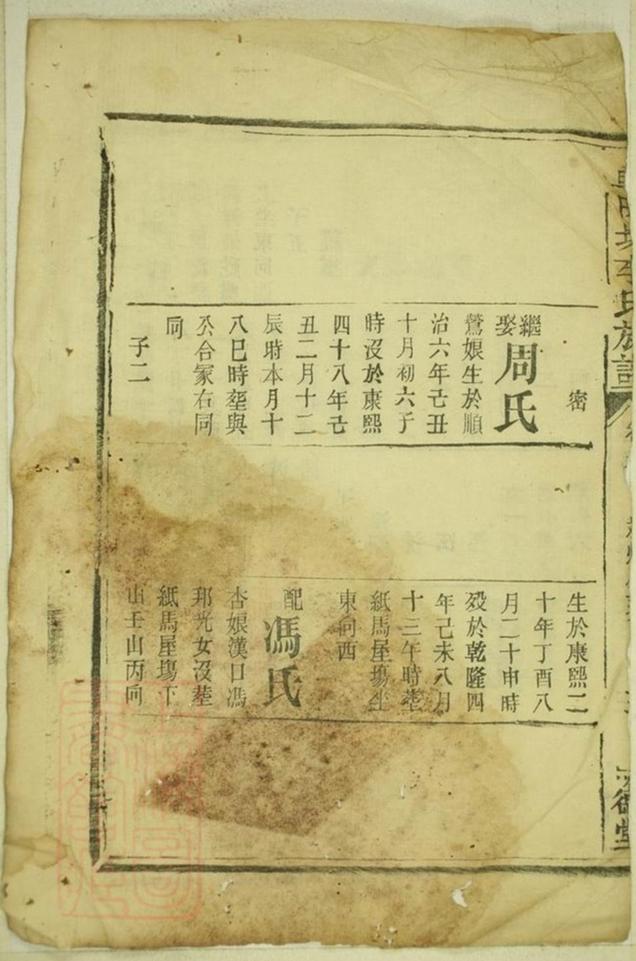 密
繼娶周氏
鶯娘生於順
治六年己丑
十月初六子
時沒於康熙
四十八年己
丑二月十二
辰時本月十
八巳時塟與
公合冢右同
向
子二
生於康熙二
十年丁酉八
月二十申時
歿於乾隆四
年己未八月
十三午時塟
紙馬屋塲坐
東向西
配馮氏
杏娘漢口馮
邦光女沒塟
紙馬屋塲下
山壬山丙向
李氏族譜
堂